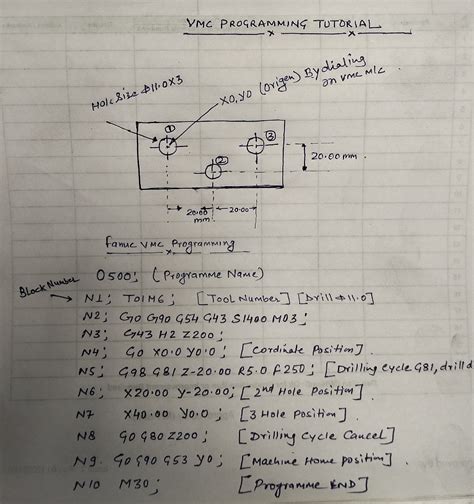 VMC PROGRAMMING TUTORIAL
Hole Size ϕ11.0X3
X0,Y0 (Origen) By dialing
on VMC M/c
①
②
③
20.00 mm
20.00
mm
20.00
fanuc VMC Programming
O500; (Programme Name)
Block Number
N1; T01M6; [Tool Number] [Drill ϕ11.0]
N2; G0 G90 G54 G43 S1400 M03;
N3; G43 H2 Z200;
N4; G0 X0.0 Y0.0; [Cordinate Position].
N5; G98 G81 Z-20.00 R5.0 F250; [Drilling Cycle G81, drill d
N6; X20.00 Y-20.00; [2nd Hole Position]
N7 X40.00 Y0.0; [3 Hole Position]
N8 G0 G80 Z200; [Drilling Cycle Cancel]
N9. G0 G90 G53 Y0; [Machine Home position]
N10 M30; [Programme END]